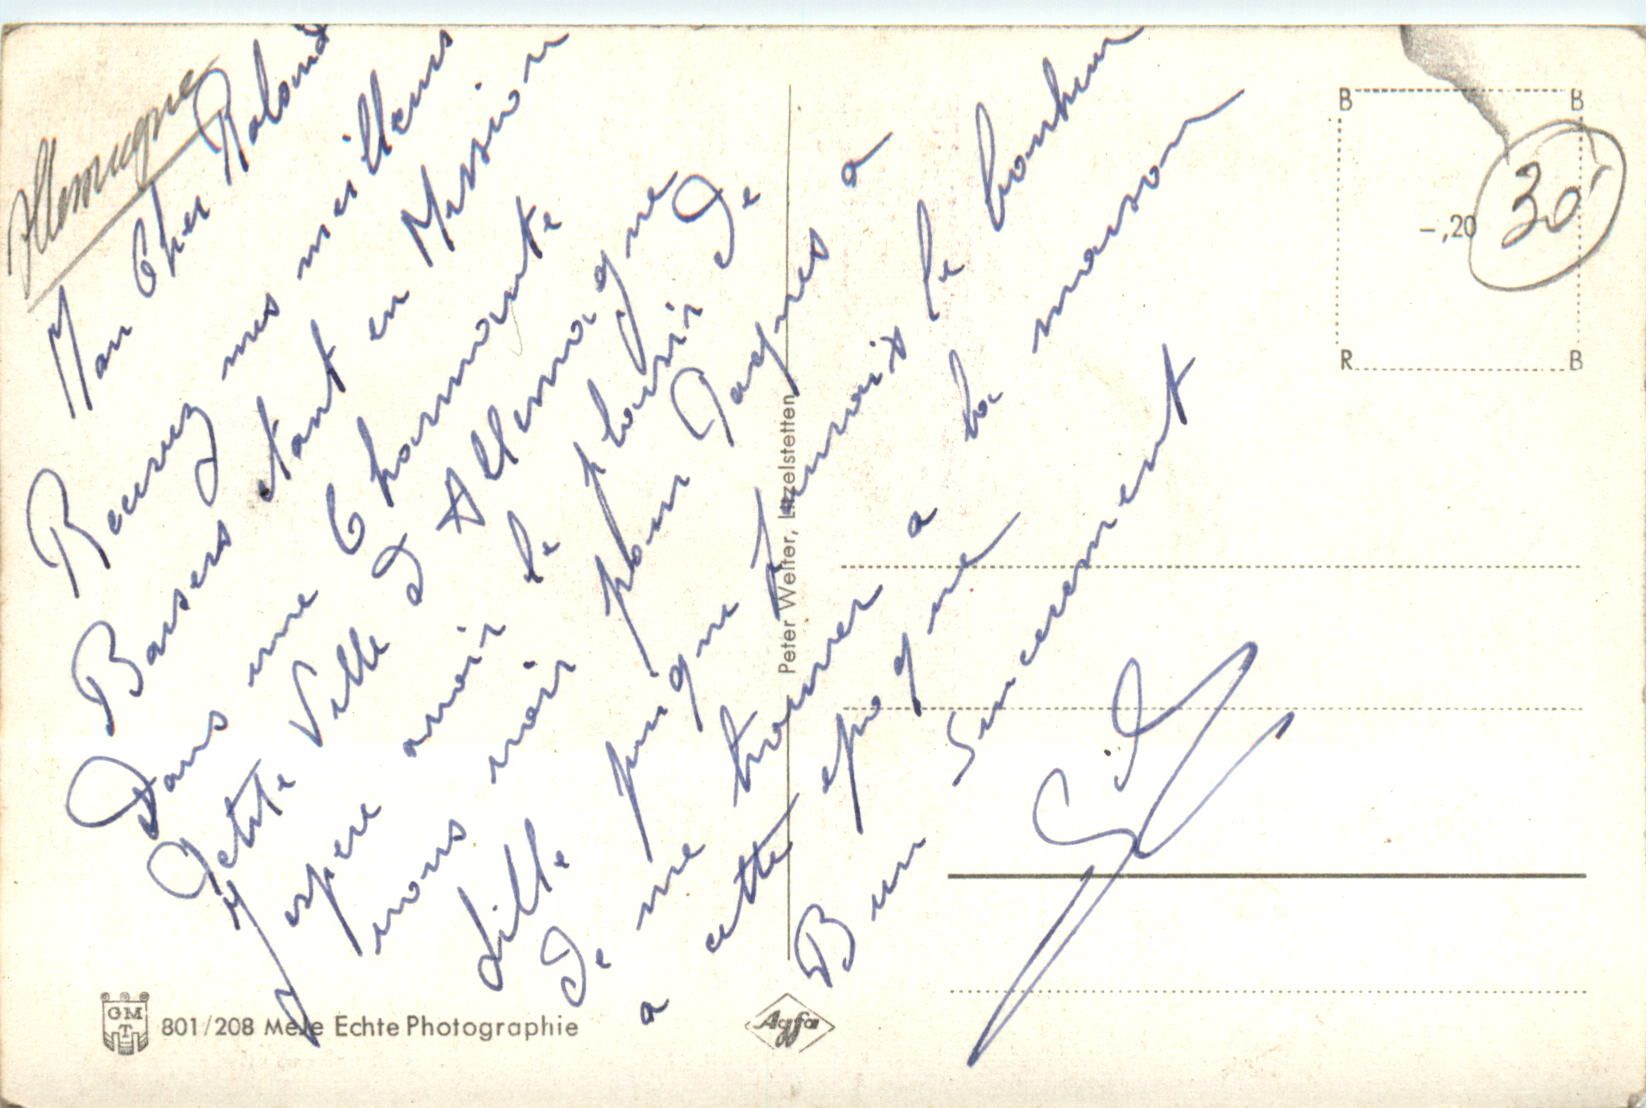 Allemagne
Mon Cher Roland
Recevez mes meilleurs
Baisers etant en Mission
Dans une Charmante
Petite Ville d Allemagne
J espere avoir le plaisir de
vous voir pour Paques a
Lille puisque J'aurais le bonheur
De me trouver a la maison
a cette epoque
Bien Sincerement
Gil
B B
R B
-,20
30
Peter Welter, Litzelstetten
GMT
801/208 Meje Echte Photographie
Agfa